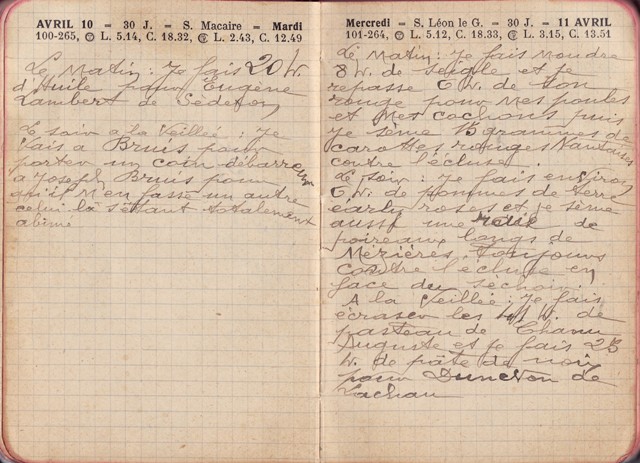 AVRIL 10 — 30 J. — S. Macaire — Mardi
100-265, L. 5.14, C. 18.32, L. 2.43, C. 12.49
Le Matin : Je fais 20 k.
d'Huile pour Eugène
Lambert de Séderon
Le soir a la Veillée : Je
vais a Bruis pour
porter un coin
a Joseph Bruis pour
qu'il m'en fasse un autre
celui là s'éttant totalement
abimé
Mercredi — S. Léon le G. — 30 J. — 11 AVRIL
101-264, L. 5.12, C. 18.33, L. 3.15, C. 13.51
Le Matin : Je fais Moudre
8 k. de seigle et je
repasse 6 k. de son
rouge pour mes poules
et Mes cochons puis
je sème 15 grammes de
carottes rouges Nantaises
contre l'écluse.
Le soir : Je fais environ
6 k. de pommes de terre
early roses et je sème
aussi une raie de
poireaux longs de
Mézières toujours
contre l'écluse en
face du séchoir.
A la Veillée : Je fais
écraser les 41 k. de
pasteau de Chanu
Auguste et je fais 25
k. de pâte de noix
pour Duncton de
Lachau